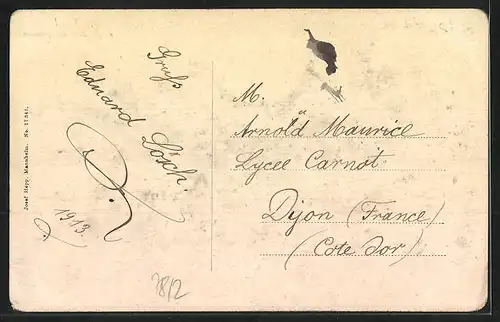 Gruß
Eduard Lösch.
1913
Josef Hepp, Mannheim. No.
M.
Arnold Maurice
Lycee Carnot
Dijon (France)
(Cote dor)